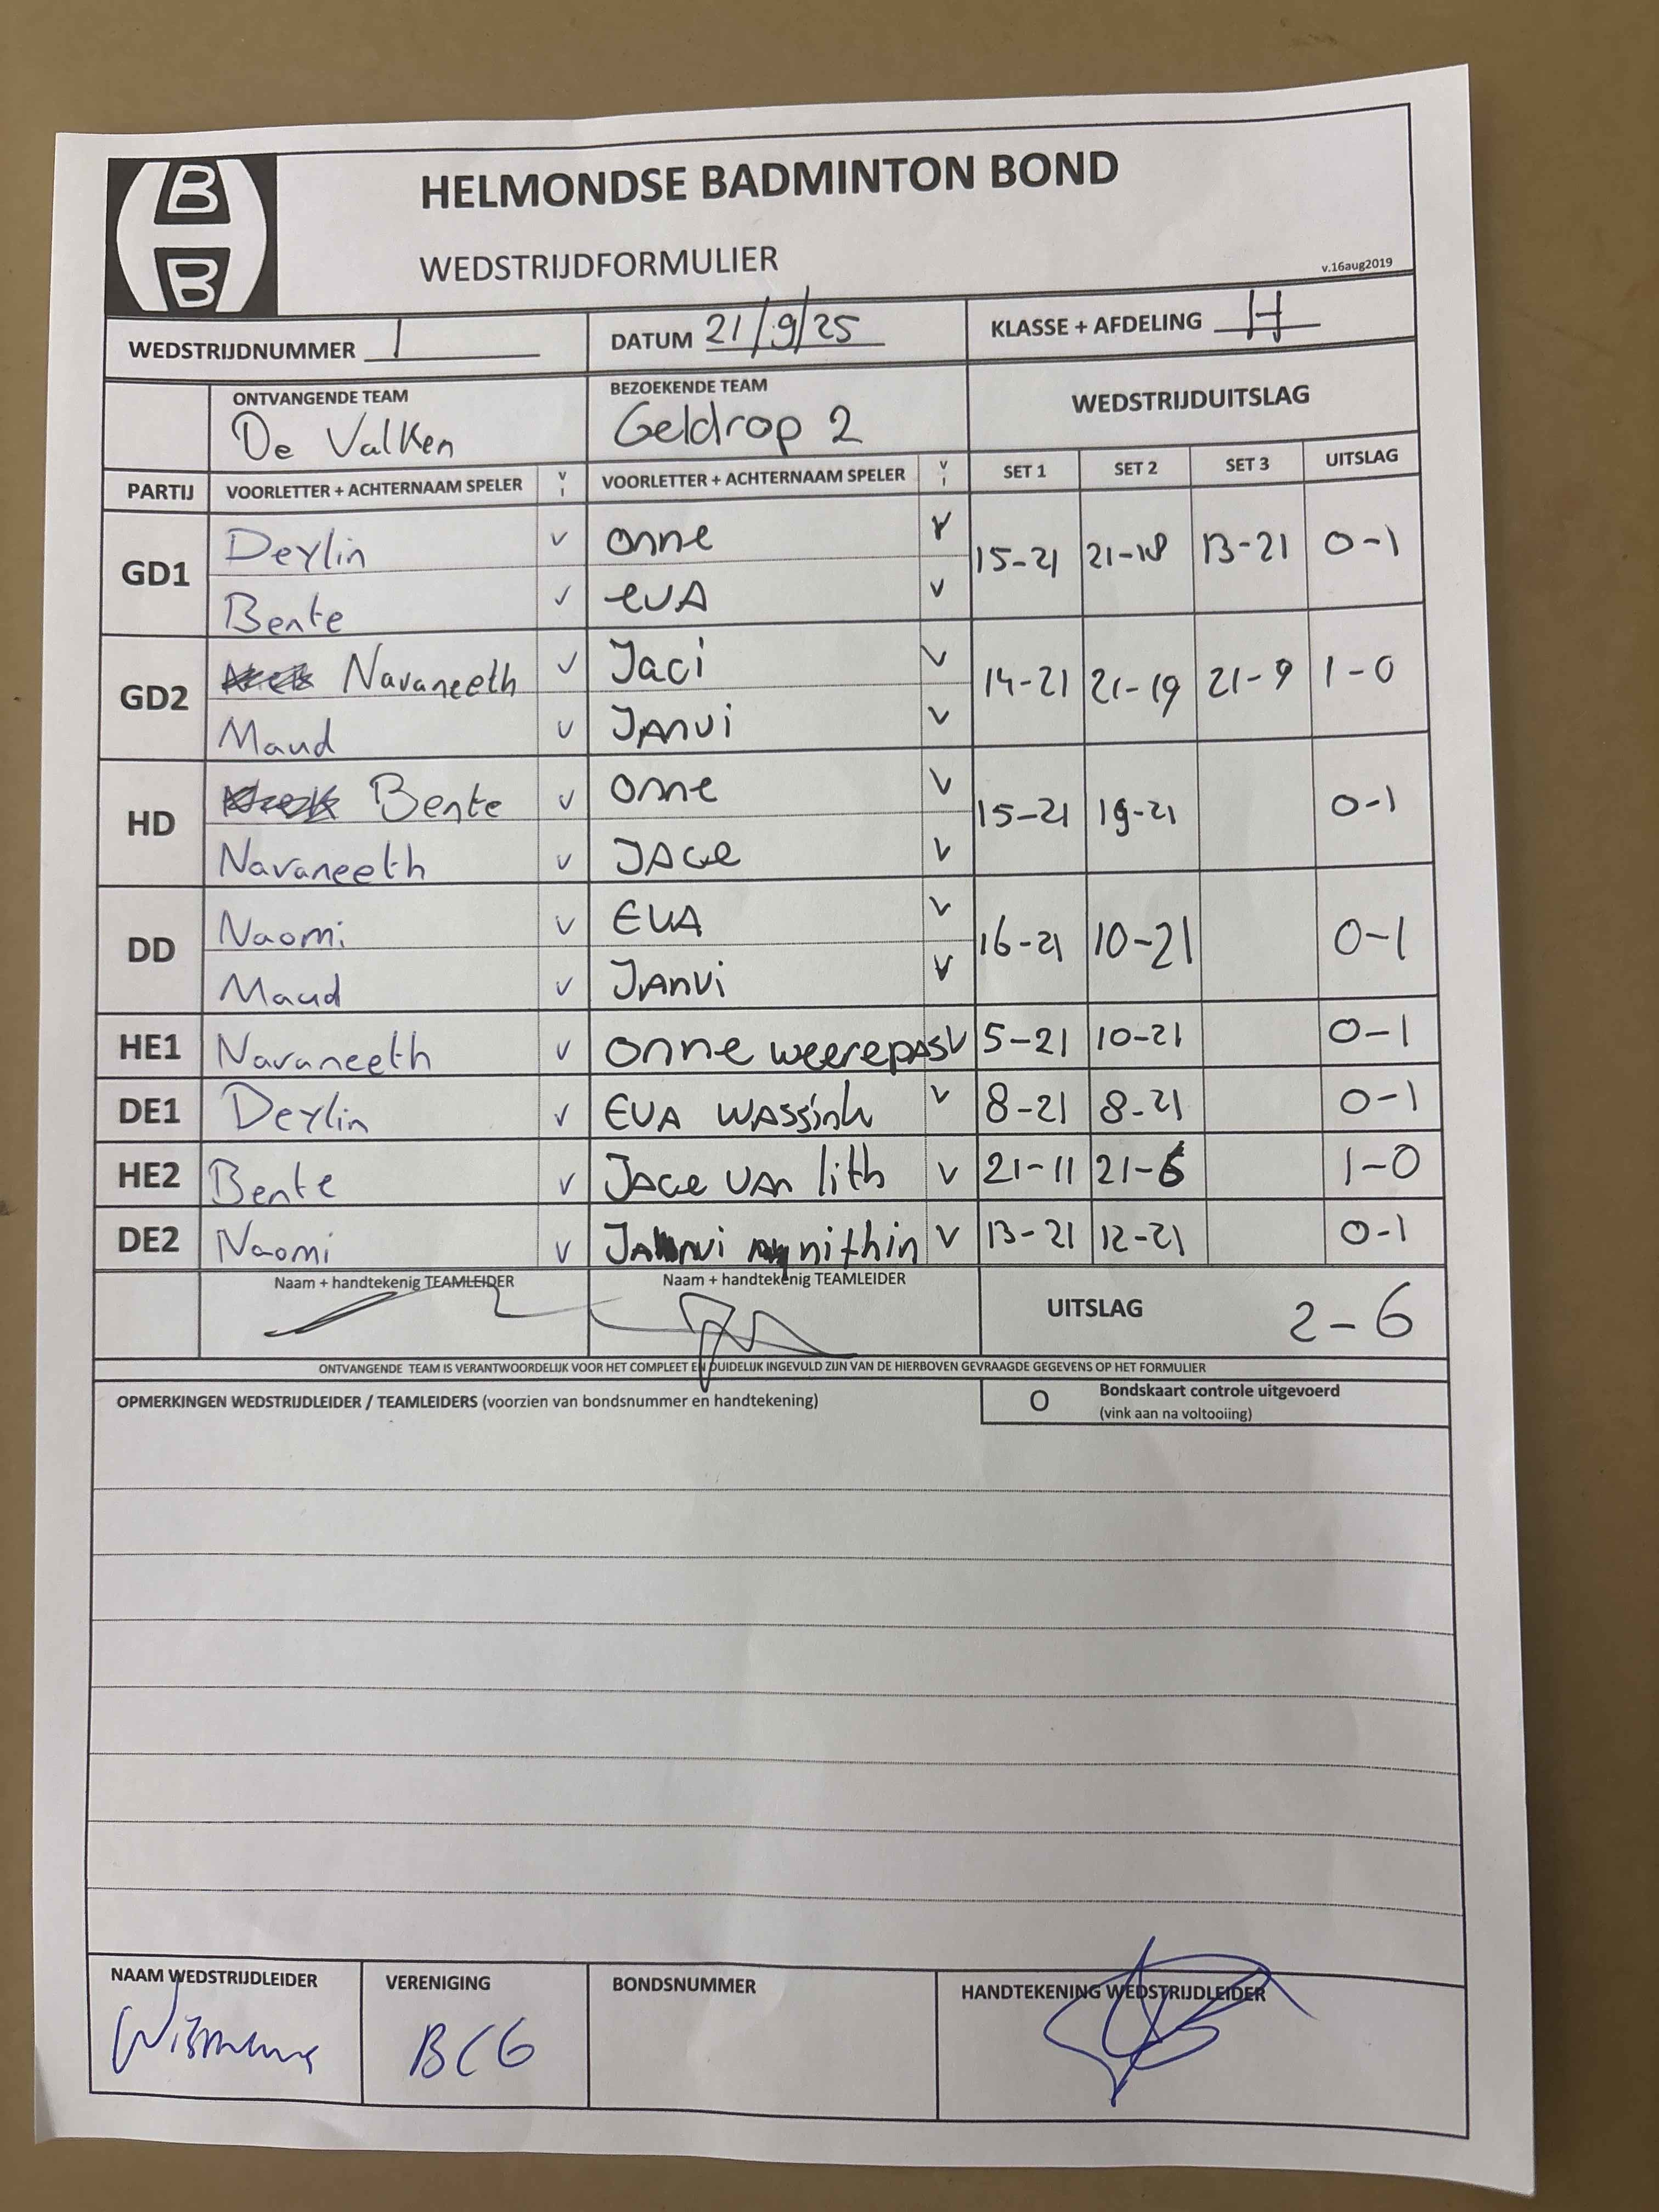 B
B
HELMONDSE BADMINTON BOND
WEDSTRIJDFORMULIER
v.16aug2019
WEDSTRIJDNUMMER 1 DATUM 21/9/25 KLASSE + AFDELING H
ONTVANGENDE TEAM BEZOEKENDE TEAM WEDSTRIJDUITSLAG
De Valken Geldrop 2
PARTIJ VOORLETTER + ACHTERNAAM SPELER V I VOORLETTER + ACHTERNAAM SPELER V I SET 1 SET 2 SET 3 UITSLAG
GD1 Deylin v onne v 15-21 21-18 13-21 0-1
Bente v evA v
GD2 Navaneeth v Jaci v 14-21 21-19 21-9 1-0
Maud v JAnvi v
HD Bente v onne v 15-21 19-21 0-1
Navaneeth v JAce v
DD Naomi v EVA v 16-21 10-21 0-1
Maud v JAnvi v
HE1 Navaneeth v onne weerepas v 5-21 10-21 0-1
DE1 Deylin v EVA WAssink v 8-21 8-21 0-1
HE2 Bente v JAce VAn lith v 21-11 21-6 1-0
DE2 Naomi v JAnvi nithin v 13-21 12-21 0-1
Naam + handtekenig TEAMLEIDER Naam + handtekenig TEAMLEIDER UITSLAG 2-6
ONTVANGENDE TEAM IS VERANTWOORDELIJK VOOR HET COMPLEET EN DUIDELIJK INGEVULD ZIJN VAN DE HIERBOVEN GEVRAAGDE GEGEVENS OP HET FORMULIER
OPMERKINGEN WEDSTRIJDLEIDER / TEAMLEIDERS (voorzien van bondsnummer en handtekening) O Bondskaart controle uitgevoerd
(vink aan na voltooiing)
NAAM WEDSTRIJDLEIDER VERENIGING BONDSNUMMER HANDTEKENING WEDSTRIJDLEIDER
BCG